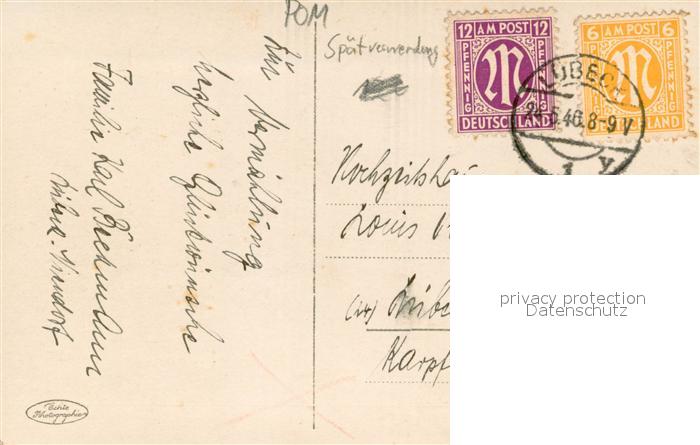 POM
Spätverwendung
12 AM POST 12
PFENNIG
PFENNIG
DEUTSCHLAND
6 AM POST 6
PFENNIG
PFENNIG
LAND
LÜBECK
46.8-9V
1 y
Zur Vermählung
herzliche Glückwünsche
Familie Karl
Lübeck-Niendorf
Hochzeitsha
Louis
(24) Lübe
Karpf
privacy protection
Datenschutz
Echte
Photographie